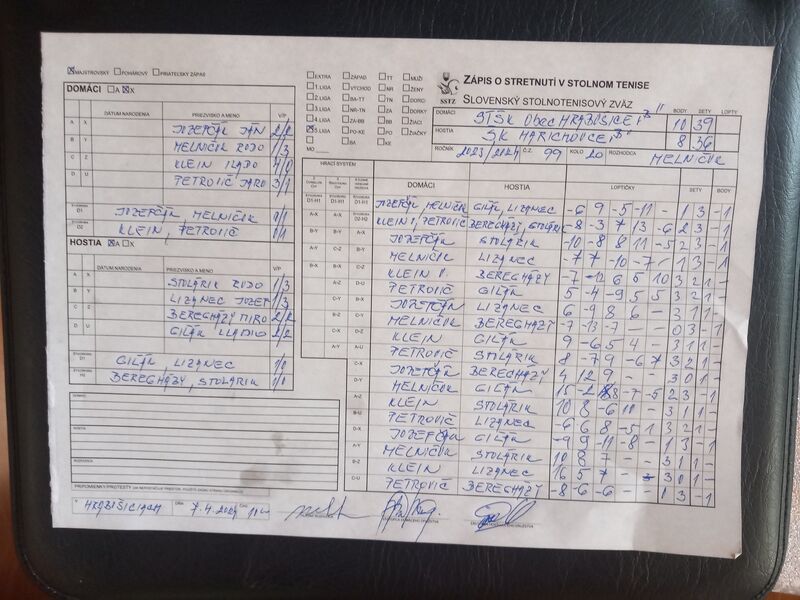 MAJSTROVSKÝ POHÁROVÝ PRIATEĽSKÝ ZÁPAS
DOMÁCI A X
DÁTUM NARODENIA PRIEZVISKO A MENO V/P
A X JOZEFČÁK JÁN 2/2
B Y MELNIČÁK RUDO 1/3
C Z KLEIN VLADO 4/0
D U PETROVIČ JARO 3/1
D1 JOZEFČÁK, MELNIČÁK 0/1
D2 KLEIN, PETROVIČ 0/1
HOSTIA A X
DÁTUM NARODENIA PRIEZVISKO A MENO V/P
A X STOLÁRIK RUDO 1/3
B Y LIZANEC JOZEF 1/3
C Z BEREGHÁZY MIRO 2/2
D U GIĽÁK VLADIO 2/2
D1 GIĽÁK, LIZANEC 1/0
H2 BEREGHÁZY, STOLÁRIK 1/0
DOMÁCI
HOSTIA
ROZHODCA
PRIPOMIENKY/PROTESTY
HRABUŠICIACH DŇA 7.4.2024
EXTRA ZÁPAD TT MUŽI
1. LIGA VÝCHOD NR ŽENY
2. LIGA BA-TT TN DORCI
3. LIGA NR-TN ZA DORKY
4. LIGA ZA-BB BB ŽIACI
5. LIGA PO-KE PO ŽIAČKY
MO BA KE
SSTZ
ZÁPIS O STRETNUTÍ V STOLNOM TENISE
SLOVENSKÝ STOLNOTENISOVÝ ZVÄZ
BODY SETY LOPTY
DOMÁCI STŠK Obec HRABUŠICE "B" 10 39
HOSTIA ŠK HARICHOVCE "B" 8 36
ROČNÍK 2023/2024 Č.Z. 99 KOLO 20 ROZHODCA MELNIČÁK
HRACÍ SYSTÉM
DOMÁCI HOSTIA LOPTIČKY SETY BODY
D1-H1 D1-H1 D1-H1 JOZEFČÁK, MELNIČÁK GIĽÁK, LIZANEC -6 9 -5 -11 - 1 3 -1
A-X A-X D2-H2 KLEIN V, PETROVIČ BEREGHÁZY, STOLÁRIK -8 -3 7 13 -6 2 3 -1
B-Y B-Y A-X JOZEFČÁK STOLÁRIK -10 -8 8 11 -5 2 3 -1
A-Y C-Z B-Y MELNIČÁK LIZANEC -7 7 -10 -7 - 1 3 -1
B-X B-X C-Z KLEIN V. BEREGHÁZY -7 -12 6 5 10 3 2 1 -
A-Z D-U PETROVIČ GIĽÁK 5 -4 -9 5 5 3 2 1 -
C-Y B-X JOZEFČÁK LIZANEC 6 -9 8 6 - 3 1 1 -
B-Z C-Y MELNIČÁK BEREGHÁZY -7 -13 -7 - - 0 3 -1
C-X D-Z KLEIN GIĽÁK 9 -6 5 4 - 3 1 1 -
A-Y A-U PETROVIČ STOLÁRIK 8 -7 9 -6 7 3 2 1 -
C-X JOZEFČÁK BEREGHÁZY 4 12 9 - - 3 0 1 -
D-Y MELNIČÁK GIĽÁK 15 -2 8 -7 -5 2 3 -1
A-Z KLEIN STOLÁRIK 10 8 -6 10 - 3 1 1 -
B-U PETROVIČ LIZANEC -6 6 8 -5 1 3 2 1 -
D-X JOZEFČÁK GIĽÁK -9 9 -11 -8 - 1 3 -1
B-Z MELNIČÁK STOLÁRIK 10 8 7 - - 3 1 1 -
C-U KLEIN LIZANEC 16 5 7 - - 3 0 1 -
PETROVIČ BEREGHÁZY -8 -6 -6 - - 0 3 -1